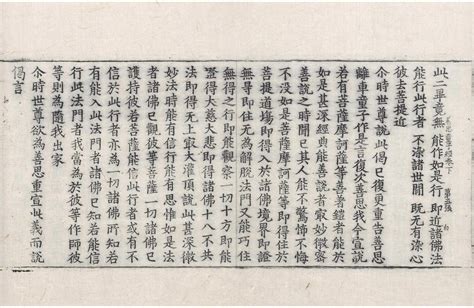 此二畢竟無 能作如是行 即近諸佛法
能行此行者 不染諸世間 既无有染心
彼去菩提近
尒時世尊說此偈已復更重告善思
離車童子作是言復次善思我今宣說
若有菩薩摩訶薩等善著鎧者能於
如是甚深經典能善說者最妙微密
善說之時聞已其人能不驚怖不悔
不没如是菩薩摩訶薩等即得住於
菩提道場即得入於諸佛境界即證
無㝵即住无為解脫法門又能巧住
無得之行即能觀察一切十方即能
證得大慈大悲即得諸佛十八不共
法即得无上㝡大灌頂說此甚深微
妙法時能有信行能有思惟如是法
者諸佛已觀彼等菩薩一切諸佛已
護持彼若菩薩能信此行者或有不
信於此行者亦為一切諸佛所知若
有能入此法門者諸佛已知若能信
行此法門者我當為於彼等作師彼
等則為隨我出家
尒時世尊欲為善思重宣此義而說
偈言